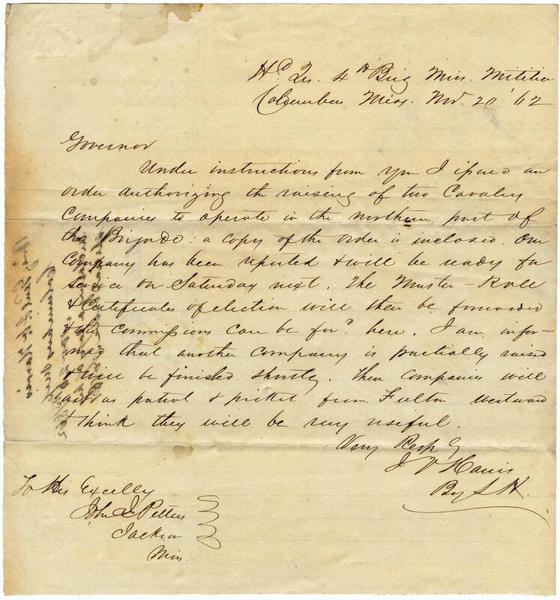 Hd Qrs. 4th Brig Miss. Militia
Columbus Miss. Nov. 20 '62
Governor
Under instructions from you I issued an
order authorizing the raising of two Cavalry
Companies to operate in the northern part of
this Brigade: a copy of the order is inclosed. One
Company has been reported & will be ready for
service on Saturday next. The Muster-Roll
& Certificates of election will then be forwarded
& the commissions can be for'd here. I am infor-
med that another company is partially raised
& will be finished shortly. These companies will
act as patrol & picket from Fulton westward
& think they will be very useful.
Very Resp Ey
J V Harris
By S H.
To His Excelly
John J. Pettus
Jackson
Miss